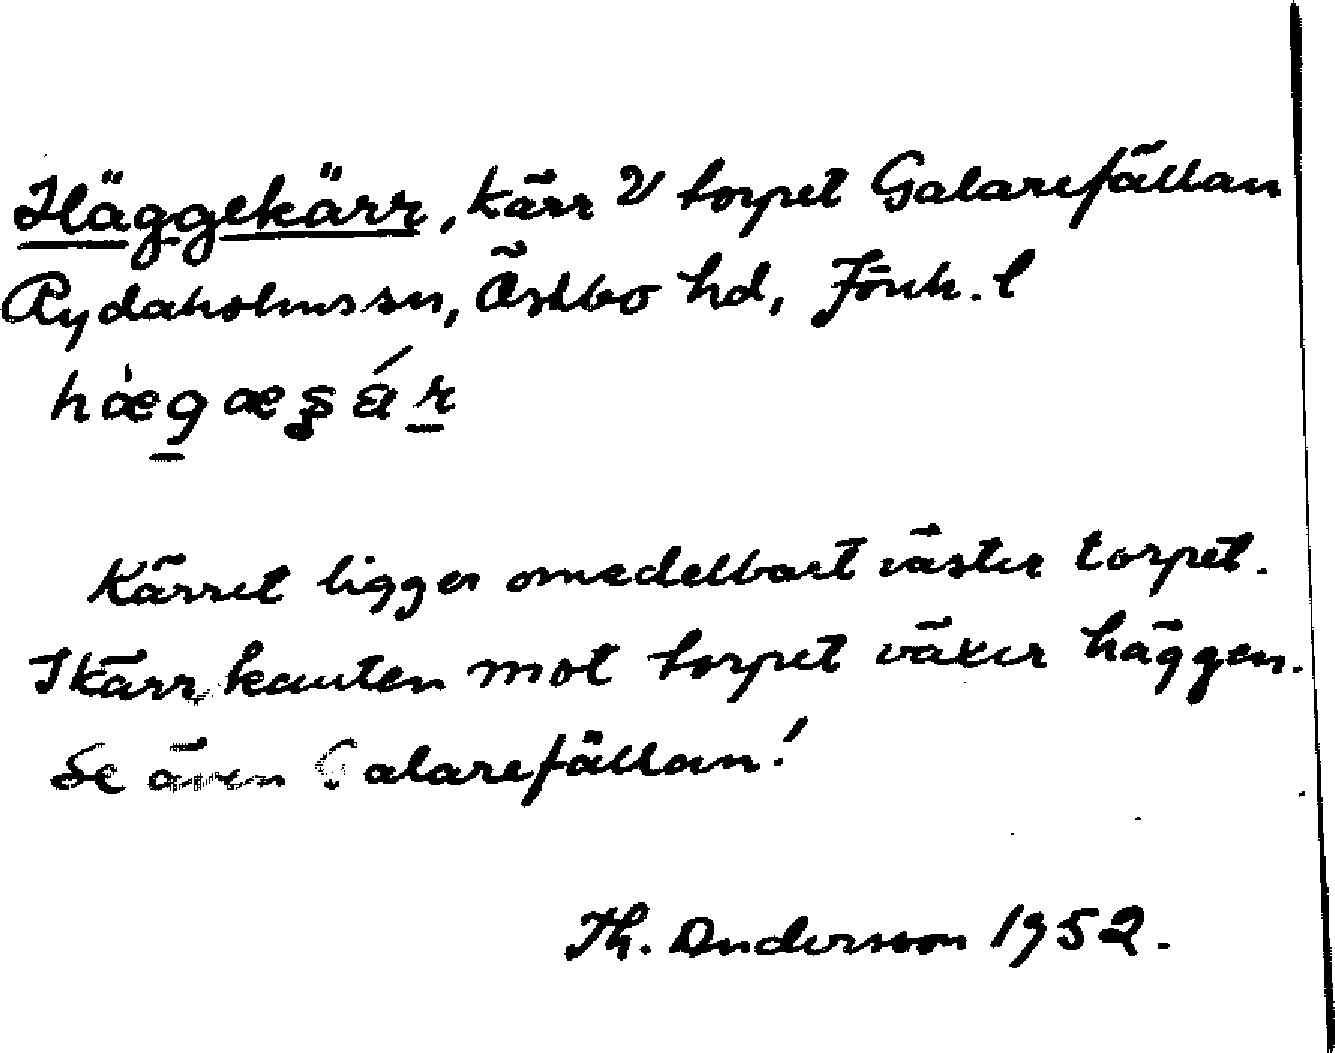 Häggekärr, kärr V torpet Galarefällan
Rydaholms sn, Östbo hd, Jönk. l
hæ̀gæʂár
Kärret ligger omedelbart väster torpet.
I kärrkanten mot torpet växer häggen.
Se även Galarefällan!
Th. Andersson 1952.